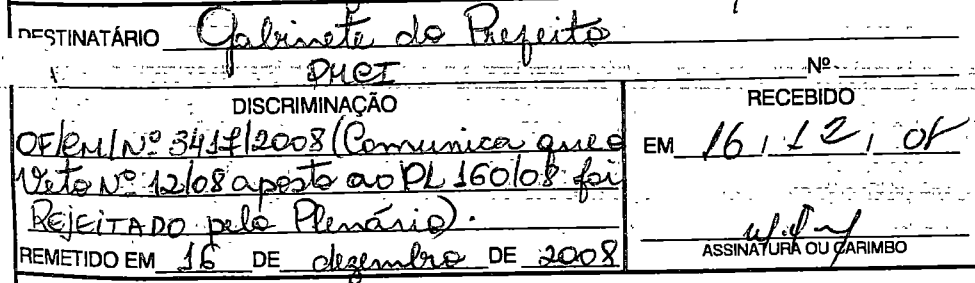 DESTINATÁRIO Gabinete do Prefeito
PMCI Nº
DISCRIMINAÇÃO
OF/CM/Nº 3417/2008 (Comunica que o
Veto Nº 12/08 aposto ao PL 160/08 foi
REJEITADO pelo Plenário).
REMETIDO EM 16 DE dezembro DE 2008
RECEBIDO
EM 16 / 12 / 08
ASSINATURA OU CARIMBO